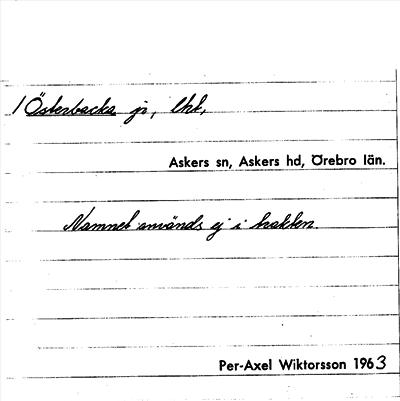 / Österbacka
Askers sn, Askers hd, Örebro län.
Namnet används ej i trakten.
Per-Axel Wiktorsson 1963